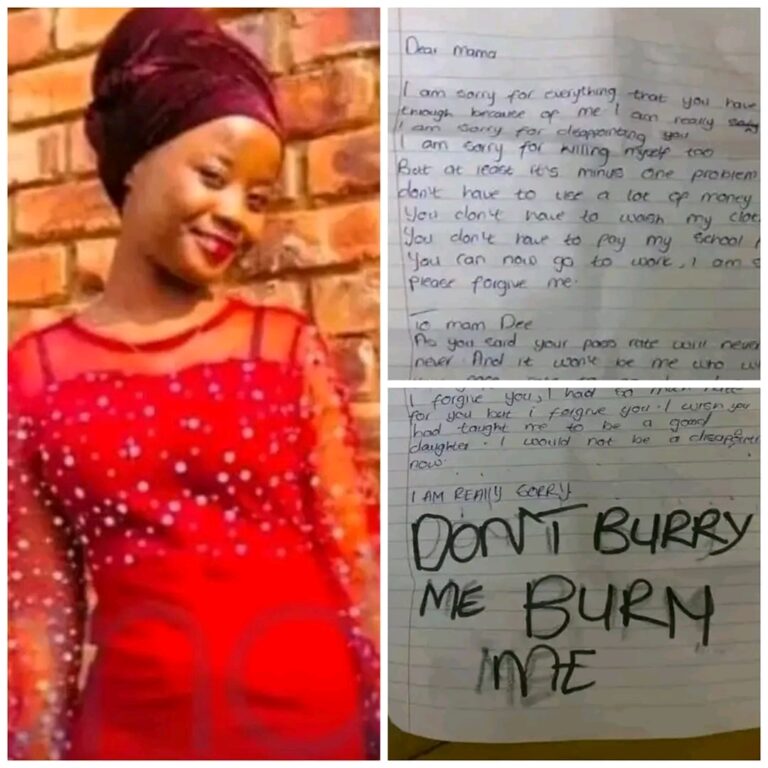 Dear mama
I am sorry for everything that you have
through because of me I am really
I am sorry for disappointing you
I am sorry for killing myself too
But at least it's minus one problem
don't have to use a lot of money
You don't have to wash my
You don't have to pay my school
You can now go to work, I am
please forgive me.
To mam Dee
As you said your pass rate will never
never. And it won't be me who
I forgive you, I had so much
for you but i forgive you. I wish you
had taught me to be a good
daughter. I would not be a
now.
I AM REALLY SORRY
DON'T BURRY
ME BURN
ME